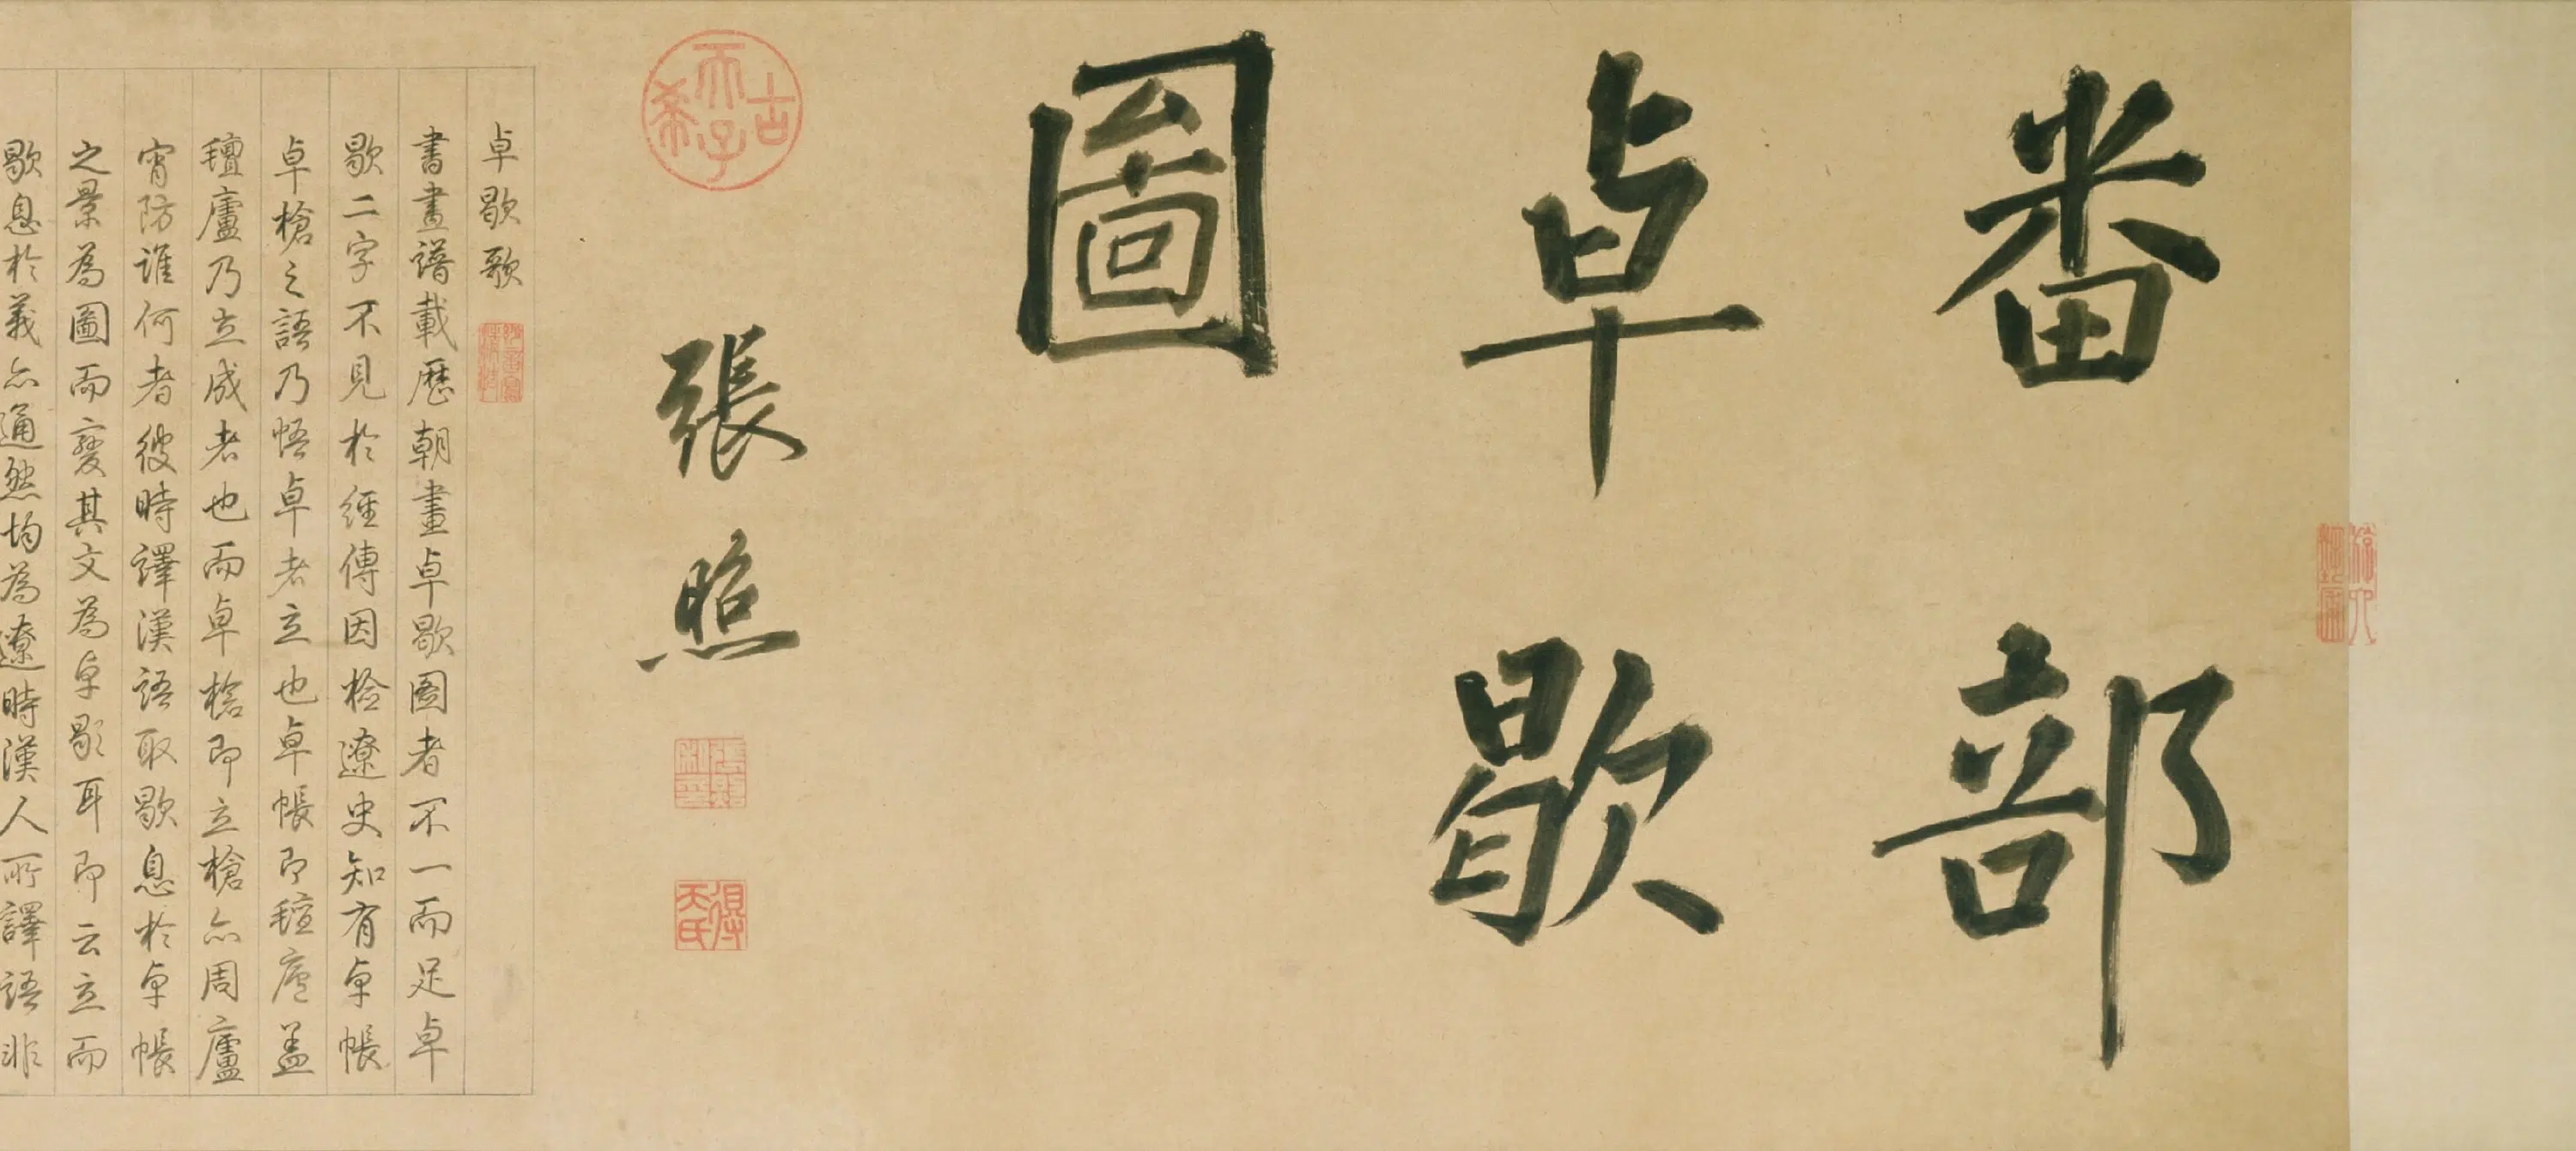 番部
卓歇
圖
古
天子
希
張照
卓歇歌
書畫譜載歷朝畫卓歇圖者不一而足卓
歇二字不見於經傳因檢遼史知有卓帳
卓槍之語乃悟卓者立也卓帳即氊廬蓋
氊廬乃立成者也而卓槍即立槍亦周廬
宵防誰何者彼時譯漢語取歇息於卓帳
之景為圖而變其文為卓歇耳即云立而
歇息於義亦通然均為遼時漢人所譯語非